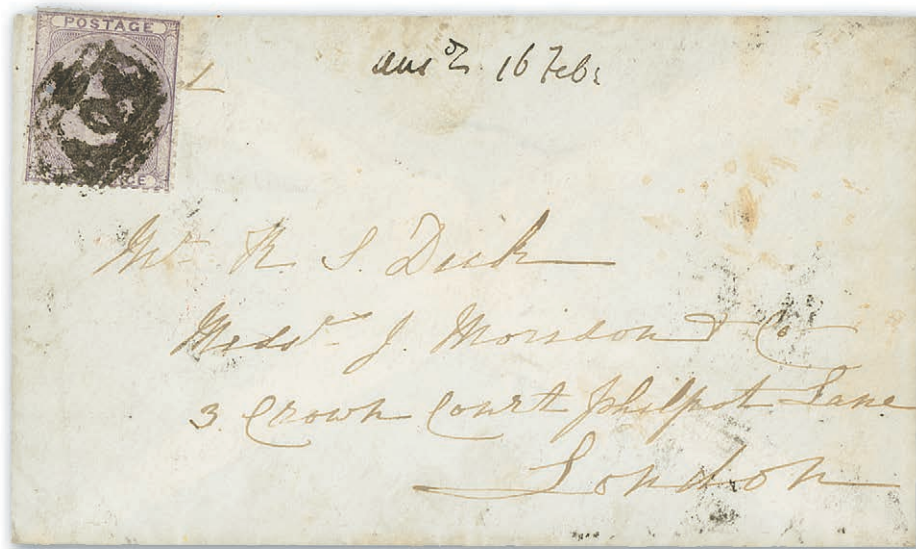 POSTAGE
ansd 16 Feb:
Mr R. S. Dick
Messrs J. Morison & Co
3 Crown Court Philpot Lane
London